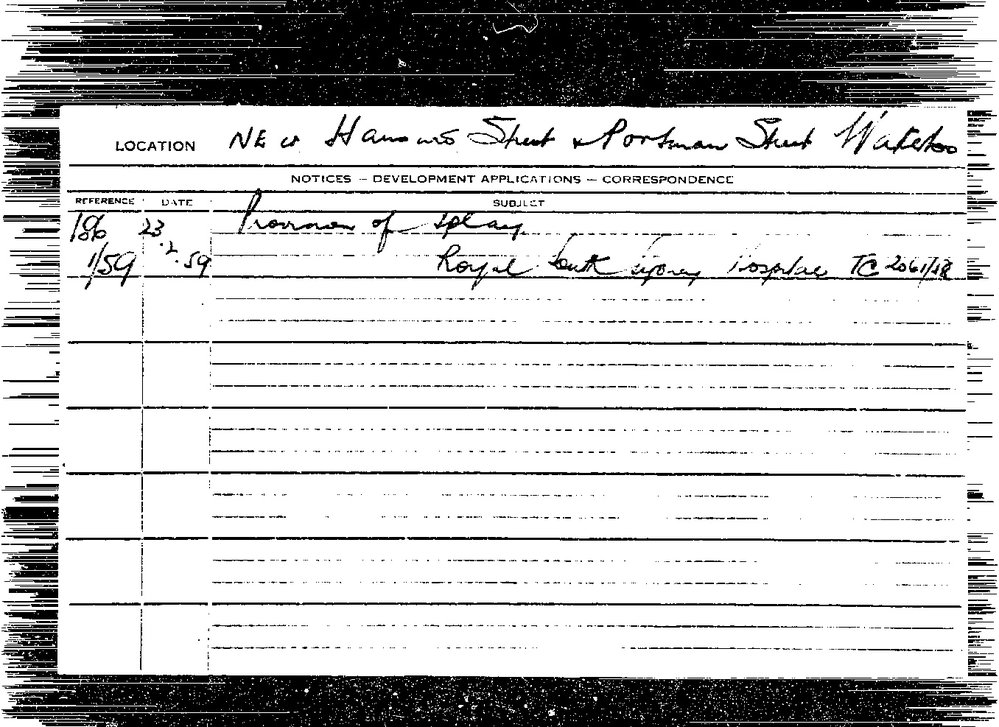 LOCATION NE Street & Portman Street Waterloo
NOTICES – DEVELOPMENT APPLICATIONS – CORRESPONDENCE
REFERENCE DATE SUBJECT
186 23 Provision of splay
1/59 .2.59 Royal South Sydney Hospital TC 2061/58